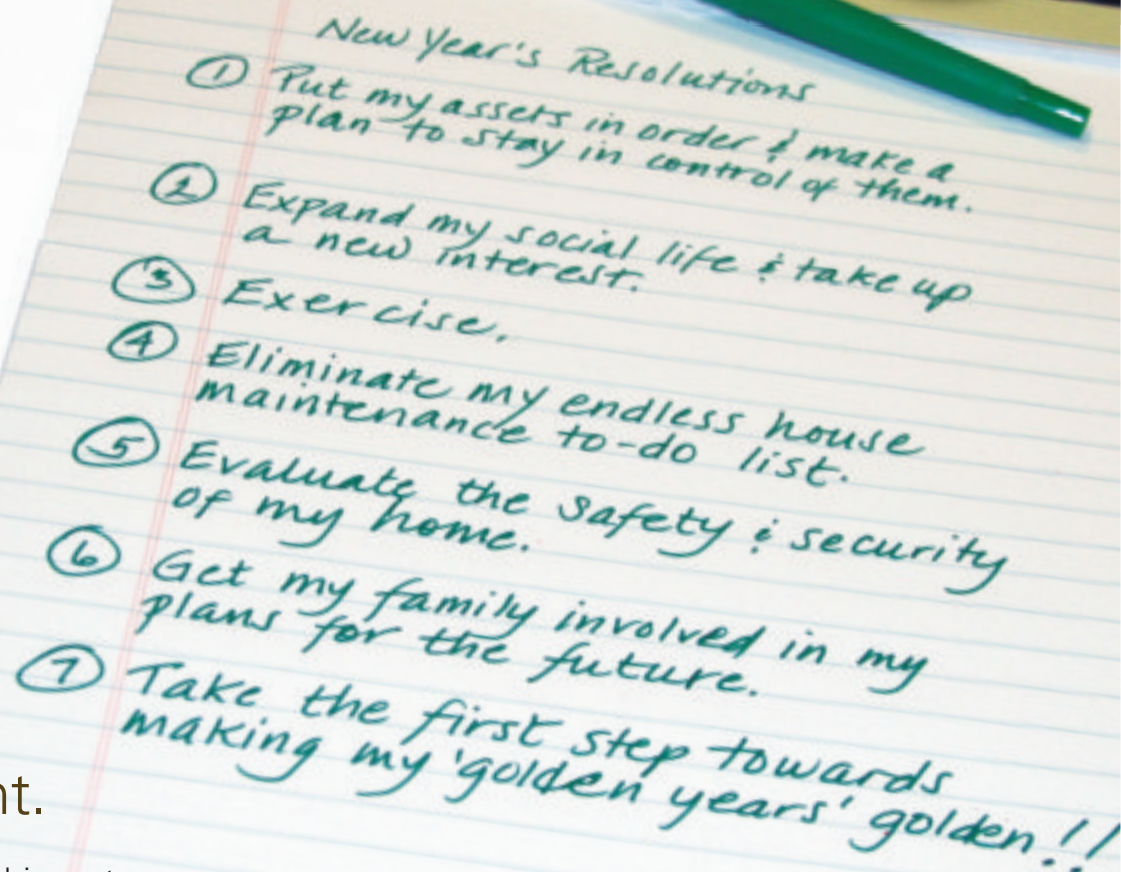 New Year's Resolutions
① Put my assets in order & make a
plan to stay in control of them.
② Expand my social life & take up
a new interest.
③ Exercise.
④ Eliminate my endless house
maintenance to-do list.
⑤ Evaluate the safety & security
of my home.
⑥ Get my family involved in my
plans for the future.
⑦ Take the first step towards
making my 'golden years' golden!!